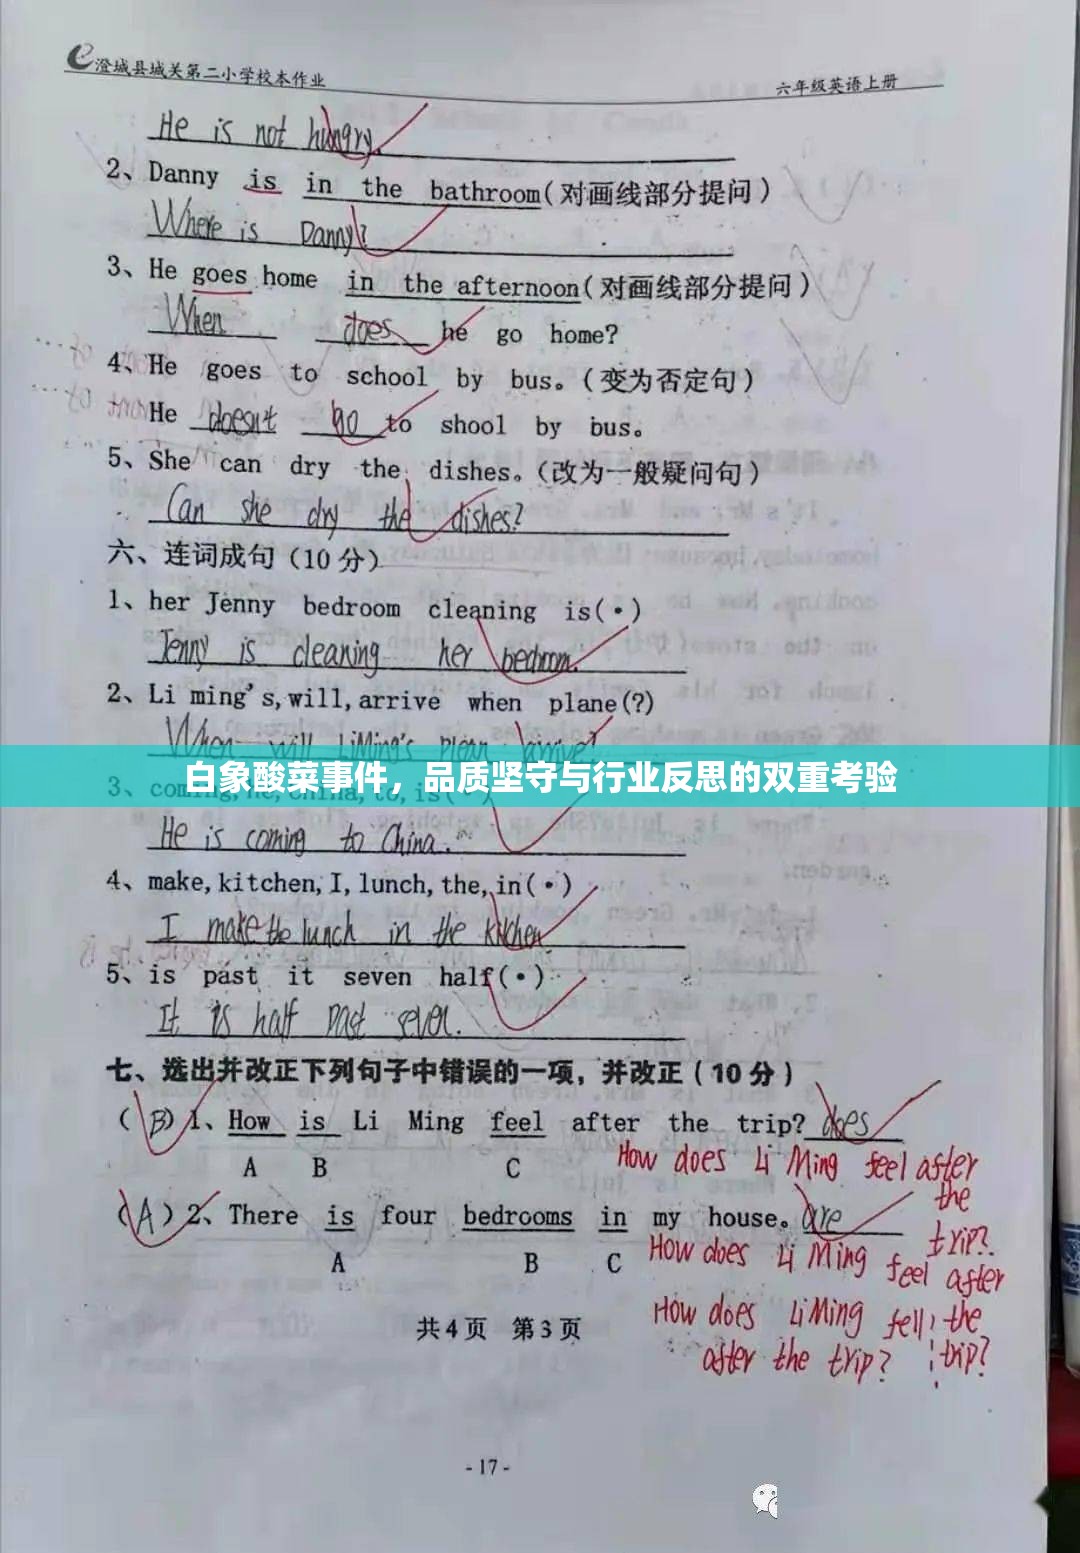 澄城县城关第二小学校本作业
六年级英语上册
He is not hungry.
2、Danny is in the bathroom(对画线部分提问)
Where is Danny?
3、He goes home in the afternoon(对画线部分提问)
When does he go home?
4、He goes to school by bus。(变为否定句)
He doesn't go to shool by bus。
5、She can dry the dishes。(改为一般疑问句)
Can she dry the dishes?
六、连词成句(10分)
1、her Jenny bedroom cleaning is(·)
Jenny is cleaning her bedroom.
2、Li ming's,will,arrive when plane(?)
When will LiMing's plean arrive?
白象酸菜事件，品质坚守与行业反思的双重考验
3、coming,he,China,to,is(·)
He is coming to China.
4、make,kitchen,I,lunch,the,in(·)
I make the lunch in the kitchen
5、is past it seven half(·)
It is half past seven.
七、选出并改正下列句子中错误的一项，并改正(10分)
(B)1、How is Li Ming feel after the trip? does
A B C
How does Li Ming feel after the trip?
(A)2、There is four bedrooms in my house。are
A B C
How does Li Ming feel after the trip?
How does LiMing fell
after the trip?
共4页 第3页
-17-